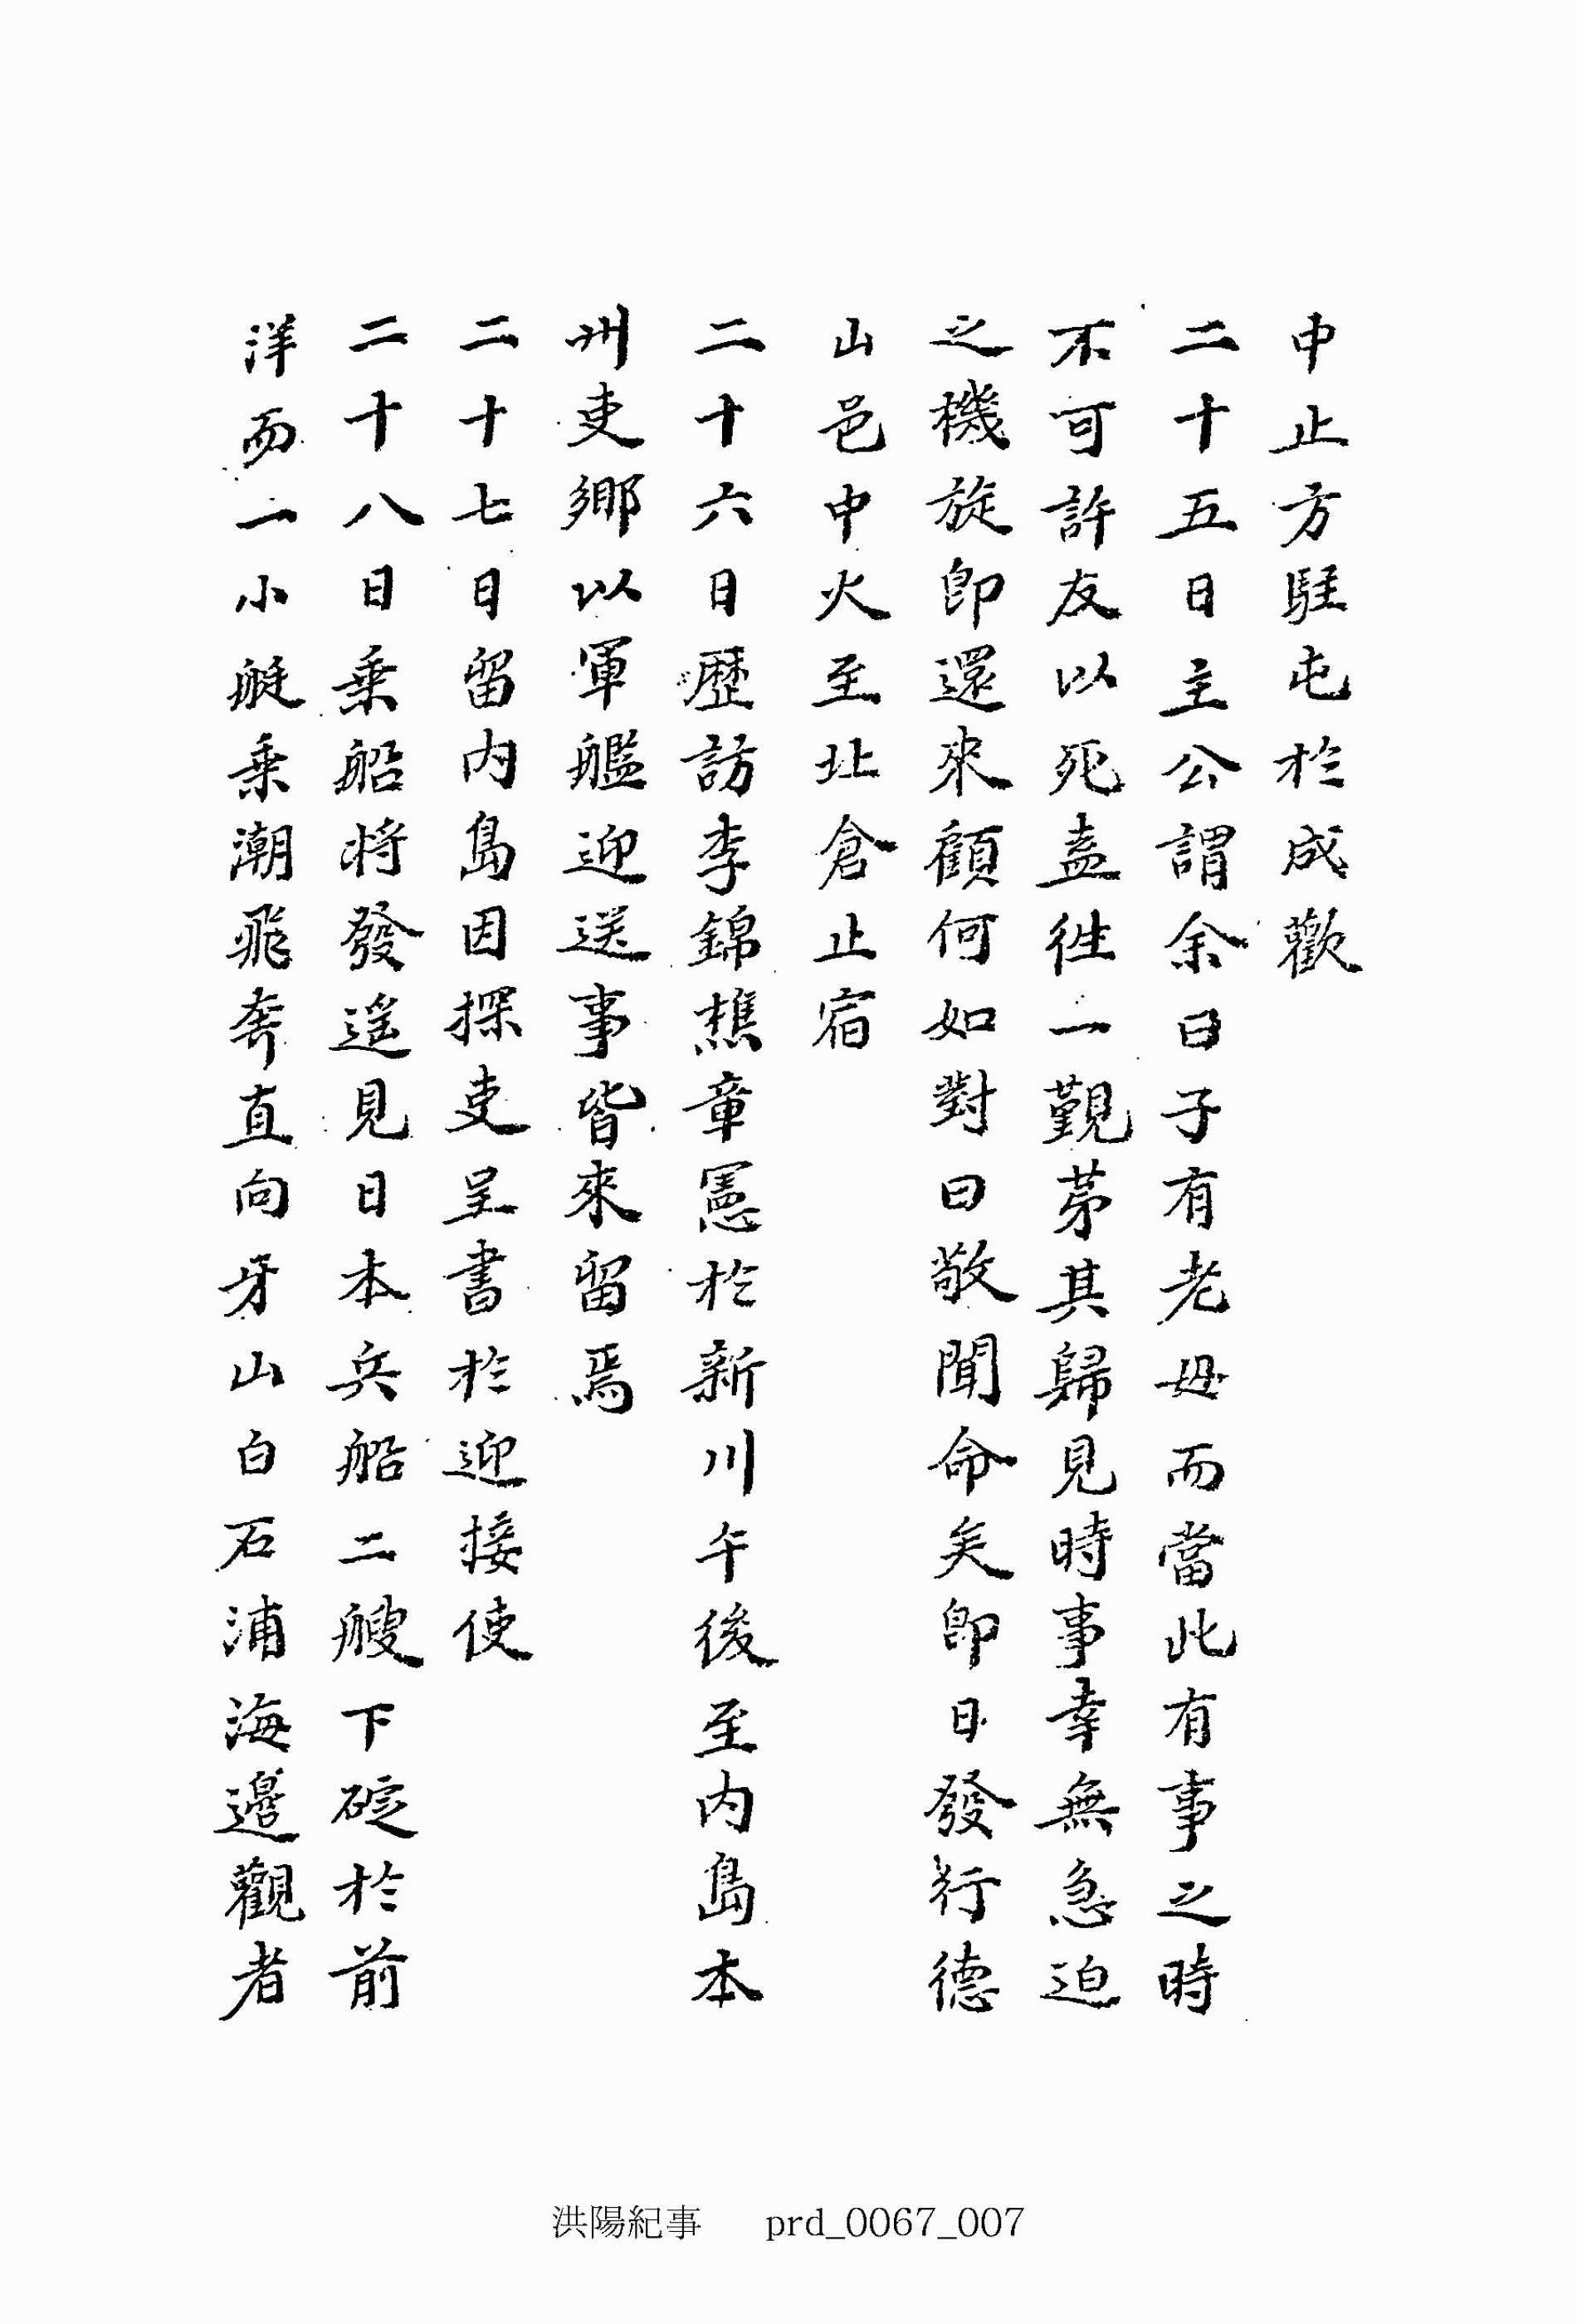 中止方駐屯於成歡
二十五日主公謂余曰子有老母而當此有事之時
不可許友以死盍徃一覲茅其歸見時事幸無急迫
之機旋即還來顧何如對曰敬聞命矣即日發行德
山邑中火至北倉止宿
二十六日歷訪李錦樵章憲於新川午後至內島本
州吏鄉以軍艦迎送事皆來留焉
二十七日留內島因探吏呈書於迎接使
二十八日乘船將發遙見日本兵船二艘下碇於前
洋而一小艇乘潮飛奔直向牙山白石浦海邊觀者
洪陽紀事 prd_0067_007